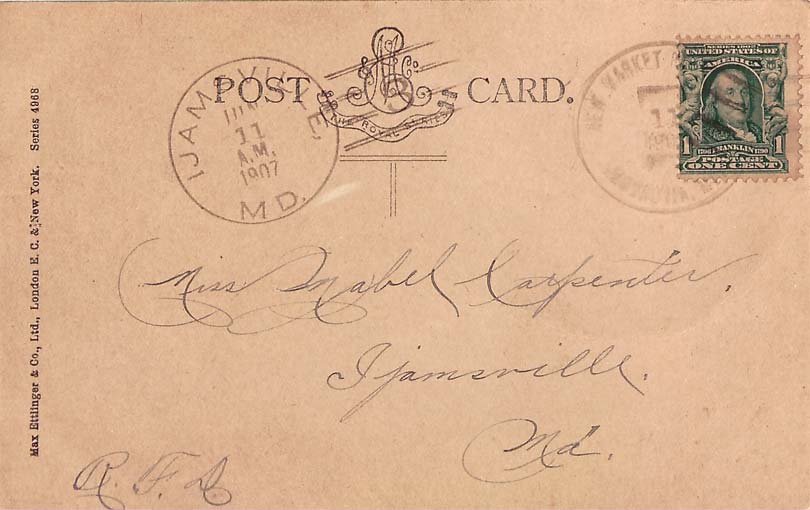 POST CARD.
M E & Co
THE ROYAL SERIES
IJAMSVILLE,
11
A.M.
1907
MD.
NEW MARKET
11
SERIES 1902
UNITED STATES OF
AMERICA
1 FRANKLIN 1
POSTAGE
ONE CENT
Miss Mabel Carpenter,
Ijamsville.
Md.
R. F. D
Max Ettlinger & Co., Ltd., London E. C. & New York. Series 4968